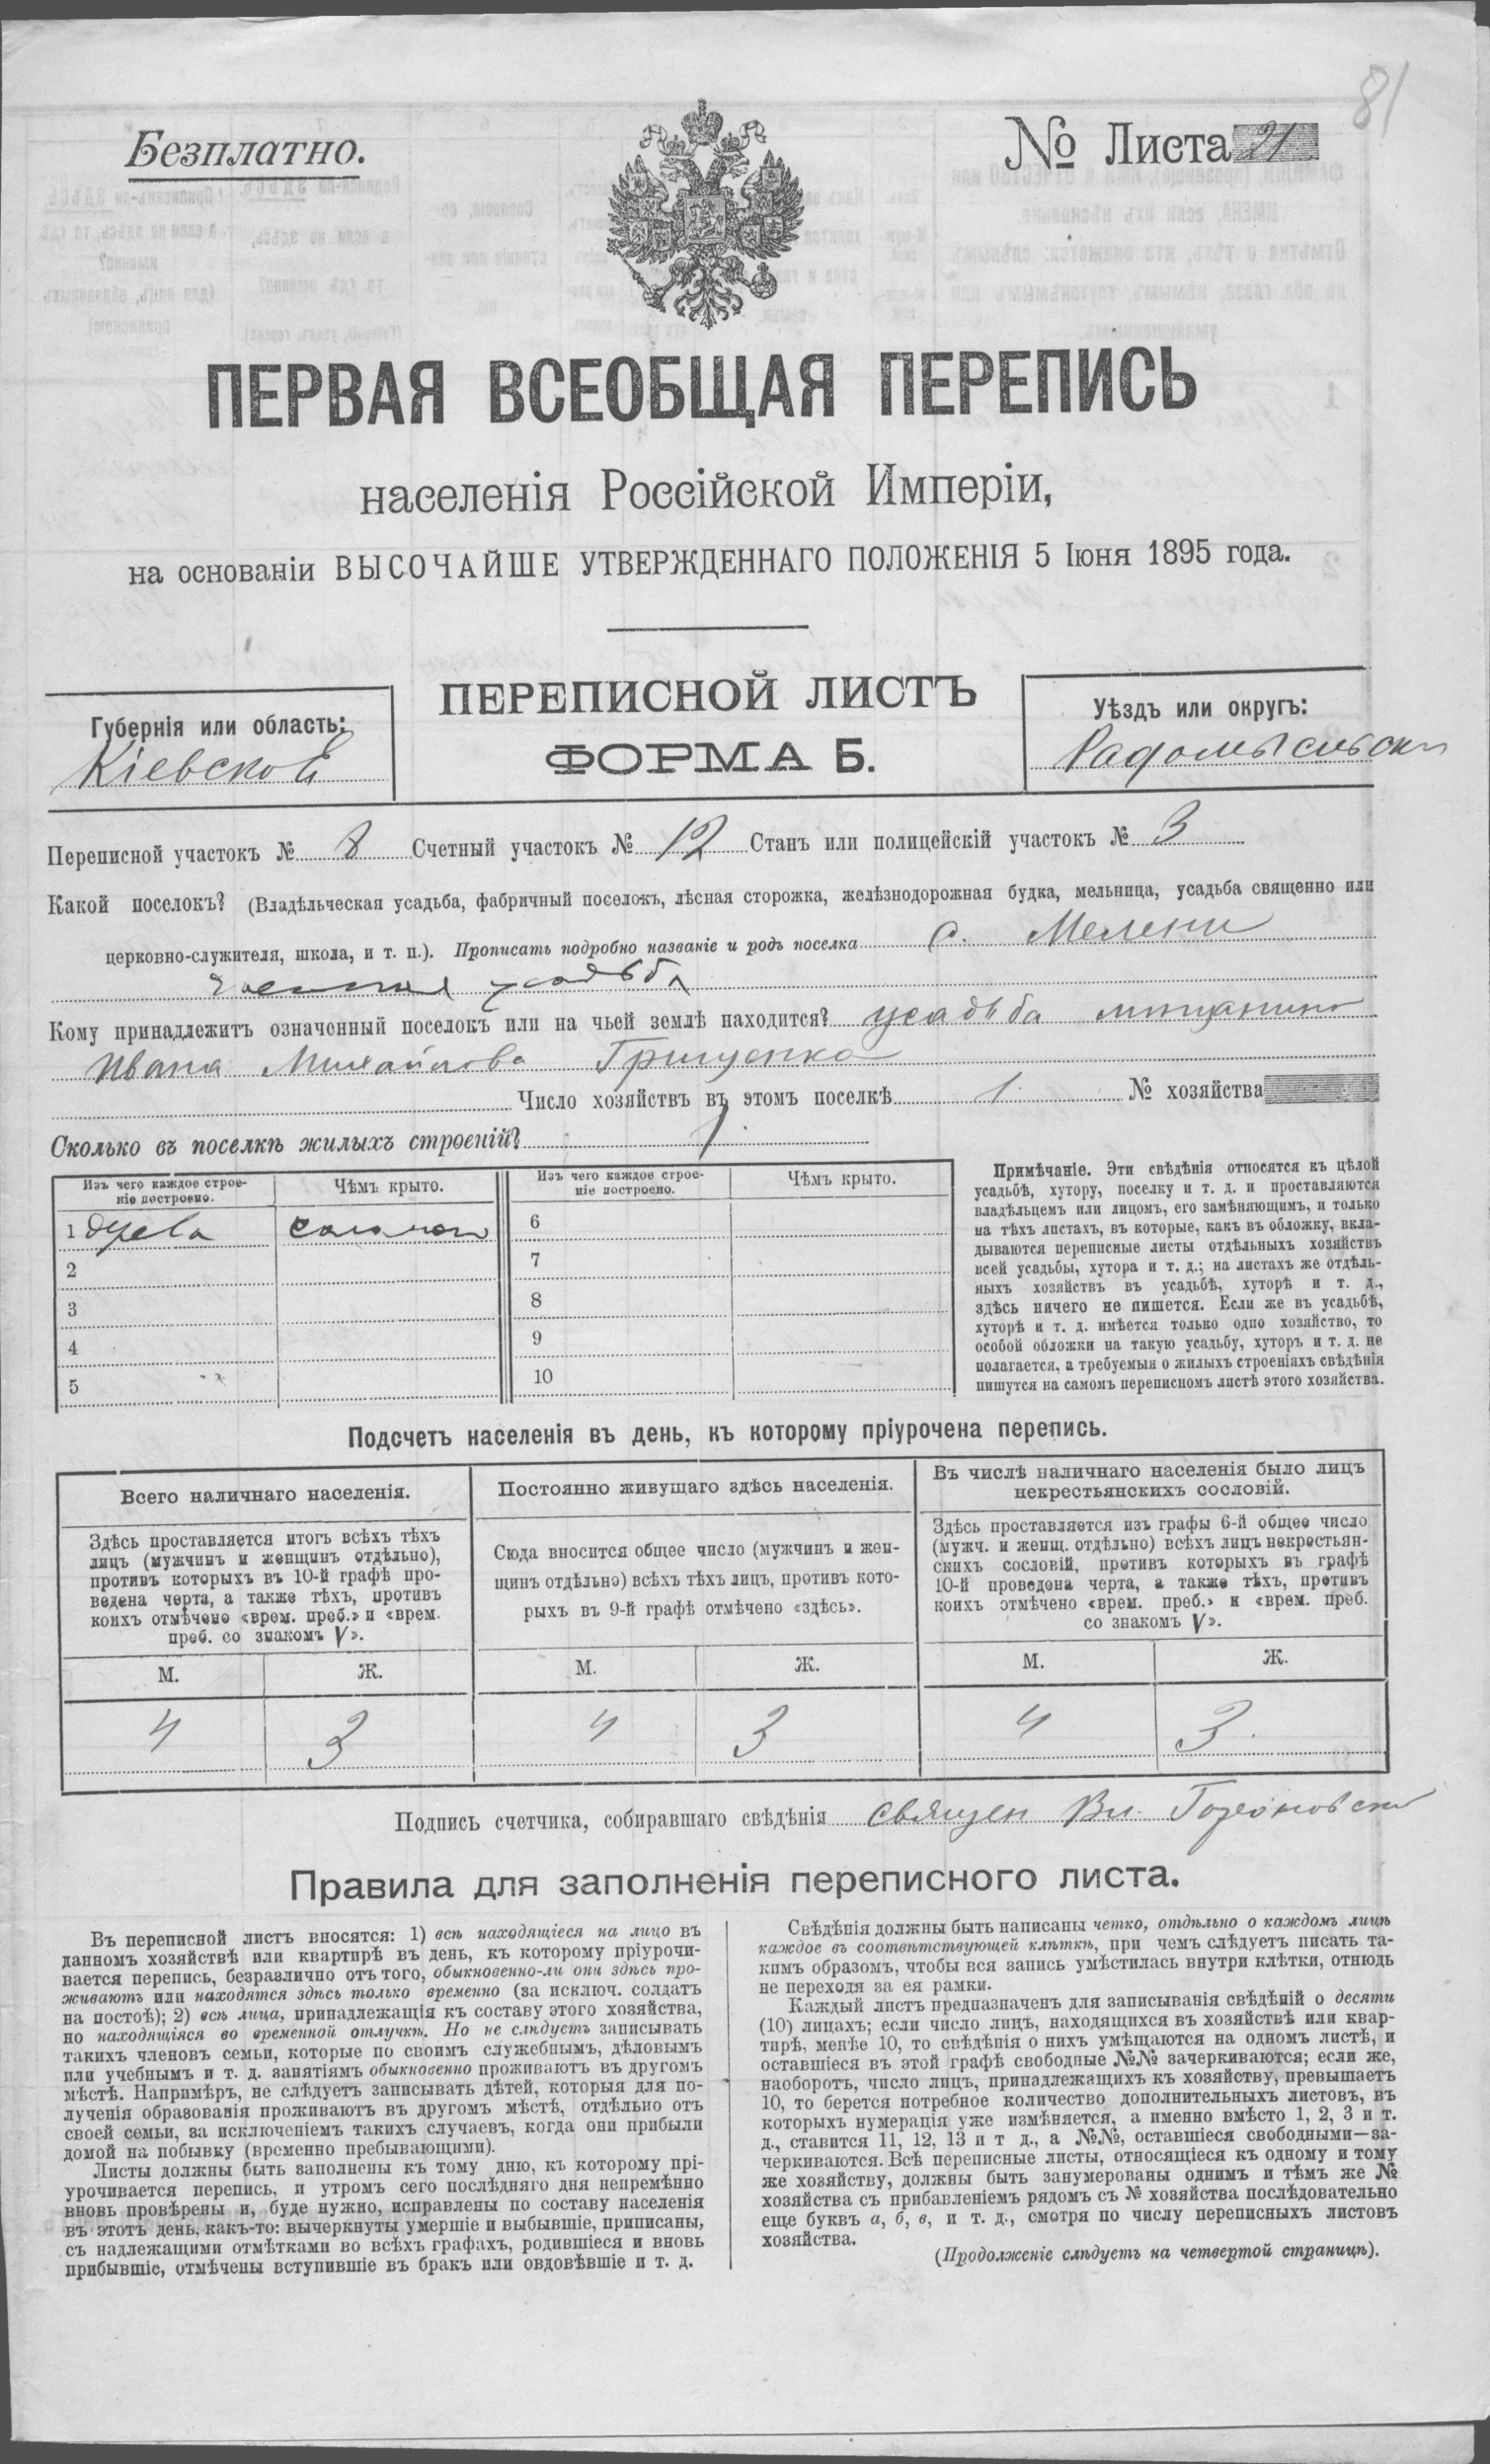 81
Безплатно.
№ Листа 21
ПЕРВАЯ ВСЕОБЩАЯ ПЕРЕПИСЬ
населенія Россійской Имперіи,
на основаніи ВЫСОЧАЙШЕ УТВЕРЖДЕННАГО ПОЛОЖЕНІЯ 5 Іюня 1895 года.
ПЕРЕПИСНОЙ ЛИСТЪ
ФОРМА Б.
Губернія или область:
Кіевской
Уѣздъ или округъ:
Радомысльски
Переписной участокъ № 8 Счетный участокъ № 12 Станъ или полицейскій участокъ № 3
Какой поселокъ? (Владѣльческая усадьба, фабричный поселокъ, лѣсная сторожка, желѣзнодорожная будка, мельница, усадьба священно или
церковно-служителя, школа, и т. п.). Прописать подробно названіе и родъ поселка с. Мелени
усадьба
Кому принадлежитъ означенный поселокъ или на чьей землѣ находится? усадьба мещанина
Ивана Михайлова Грищенка
Число хозяйствъ въ этомъ поселкѣ 1. № хозяйства
Сколько въ поселкѣ жилыхъ строеній? 1.
Изъ чего каждое строе-
ніе построено.
Чѣмъ крыто.
Изъ чего каждое строе-
ніе построено.
Чѣмъ крыто.
1 древа соломои 6
2 7
3 8
4 9
5 10
Примѣчаніе. Эти свѣдѣнія относятся къ цѣлой
усадьбѣ, хутору, поселку и т. д. и проставляются
владѣльцемъ или лицомъ, его замѣняющимъ, и только
на тѣхъ листахъ, въ которые, какъ въ обложку, вкла-
дываются переписные листы отдѣльныхъ хозяйствъ
всей усадьбы, хутора и т. д.; на листахъ же отдѣль-
ныхъ хозяйствъ въ усадьбѣ, хуторѣ и т. д.,
здѣсь ничего не пишется. Если же въ усадьбѣ,
хуторѣ и т. д. имѣется только одно хозяйство, то
особой обложки на такую усадьбу, хуторъ и т. д. не
полагается, а требуемыя о жилыхъ строеніяхъ свѣдѣнія
пишутся на самомъ переписномъ листѣ этого хозяйства.
Подсчетъ населенія въ день, къ которому пріурочена перепись.
Всего наличнаго населенія.
Здѣсь проставляется итогъ всѣхъ тѣхъ
лицъ (мужчинъ и женщинъ отдѣльно),
противъ которыхъ въ 10-й графѣ про-
ведена черта, а также тѣхъ, противъ
коихъ отмѣчено «врем. преб.» и «врем.
преб. со знакомъ V».
М. Ж.
4 3
Постоянно живущаго здѣсь населенія.
Сюда вносится общее число (мужчинъ и жен-
щинъ отдѣльно) всѣхъ тѣхъ лицъ, противъ кото-
рыхъ въ 9-й графѣ отмѣчено «здѣсь».
М. Ж.
4 3
Въ числѣ наличнаго населенія было лицъ
некрестьянскихъ сословій.
Здѣсь проставляется изъ графы 6-й общее число
(мужч. и женщ. отдѣльно) всѣхъ лицъ некрестьян-
скихъ сословій, противъ которыхъ въ графѣ
10-й проведена черта, а также тѣхъ, противъ
коихъ отмѣчено «врем. преб.» и «врем. преб.
со знакомъ V».
М. Ж.
4 3.
Подпись счетчика, собиравшаго свѣдѣнія священ Вл.
Правила для заполненія переписного листа.
Въ переписной листъ вносятся: 1) всѣ находящіеся на лицо въ
данномъ хозяйствѣ или квартирѣ въ день, къ которому пріурочи-
вается перепись, безразлично отъ того, обыкновенно-ли они здѣсь про-
живаютъ или находятся здѣсь только временно (за исключ. солдатъ
на постоѣ); 2) всѣ лица, принадлежащія къ составу этого хозяйства,
но находящіяся во временной отлучкѣ. Но не слѣдуетъ записывать
такихъ членовъ семьи, которые по своимъ служебнымъ, дѣловымъ
или учебнымъ и т. д. занятіямъ обыкновенно проживаютъ въ другомъ
мѣстѣ. Напримѣръ, не слѣдуетъ записывать дѣтей, которыя для по-
лученія образованія проживаютъ въ другомъ мѣстѣ, отдѣльно отъ
своей семьи, за исключеніемъ такихъ случаевъ, когда они прибыли
домой на побывку (временно пребывающими).
Листы должны быть заполнены къ тому дню, къ которому прі-
урочивается перепись, и утромъ сего послѣдняго дня непремѣнно
вновь провѣрены и, буде нужно, исправлены по составу населенія
въ этотъ день, какъ-то: вычеркнуты умершіе и выбывшіе, приписаны,
съ надлежащими отмѣтками во всѣхъ графахъ, родившіеся и вновь
прибывшіе, отмѣчены вступившіе въ бракъ или овдовѣвшіе и т. д.
Свѣдѣнія должны быть написаны четко, отдѣльно о каждомъ лицѣ
каждое въ соотвѣтствующей клѣткѣ, при чемъ слѣдуетъ писать та-
кимъ образомъ, чтобы вся запись умѣстилась внутри клѣтки, отнюдь
не переходя за ея рамки.
Каждый листъ предназначенъ для записыванія свѣдѣній о десяти
(10) лицахъ; если число лицъ, находящихся въ хозяйствѣ или квар-
тирѣ, менѣе 10, то свѣдѣнія о нихъ умѣщаются на одномъ листѣ, и
оставшіеся въ этой графѣ свободные №№ зачеркиваются; если же,
наоборотъ, число лицъ, принадлежащихъ къ хозяйству, превышаетъ
10, то берется потребное количество дополнительныхъ листовъ, въ
которыхъ нумерація уже измѣняется, а именно вмѣсто 1, 2, 3 и т.
д., ставится 11, 12, 13 и т д., а №№, оставшіеся свободными—за-
черкиваются. Всѣ переписные листы, относящіеся къ одному и тому
же хозяйству, должны быть занумерованы однимъ и тѣмъ же №
хозяйства съ прибавленіемъ рядомъ съ № хозяйства послѣдовательно
еще буквъ а, б, в, и т. д., смотря по числу переписныхъ листовъ
хозяйства.
(Продолженіе слѣдуетъ на четвертой страницѣ).